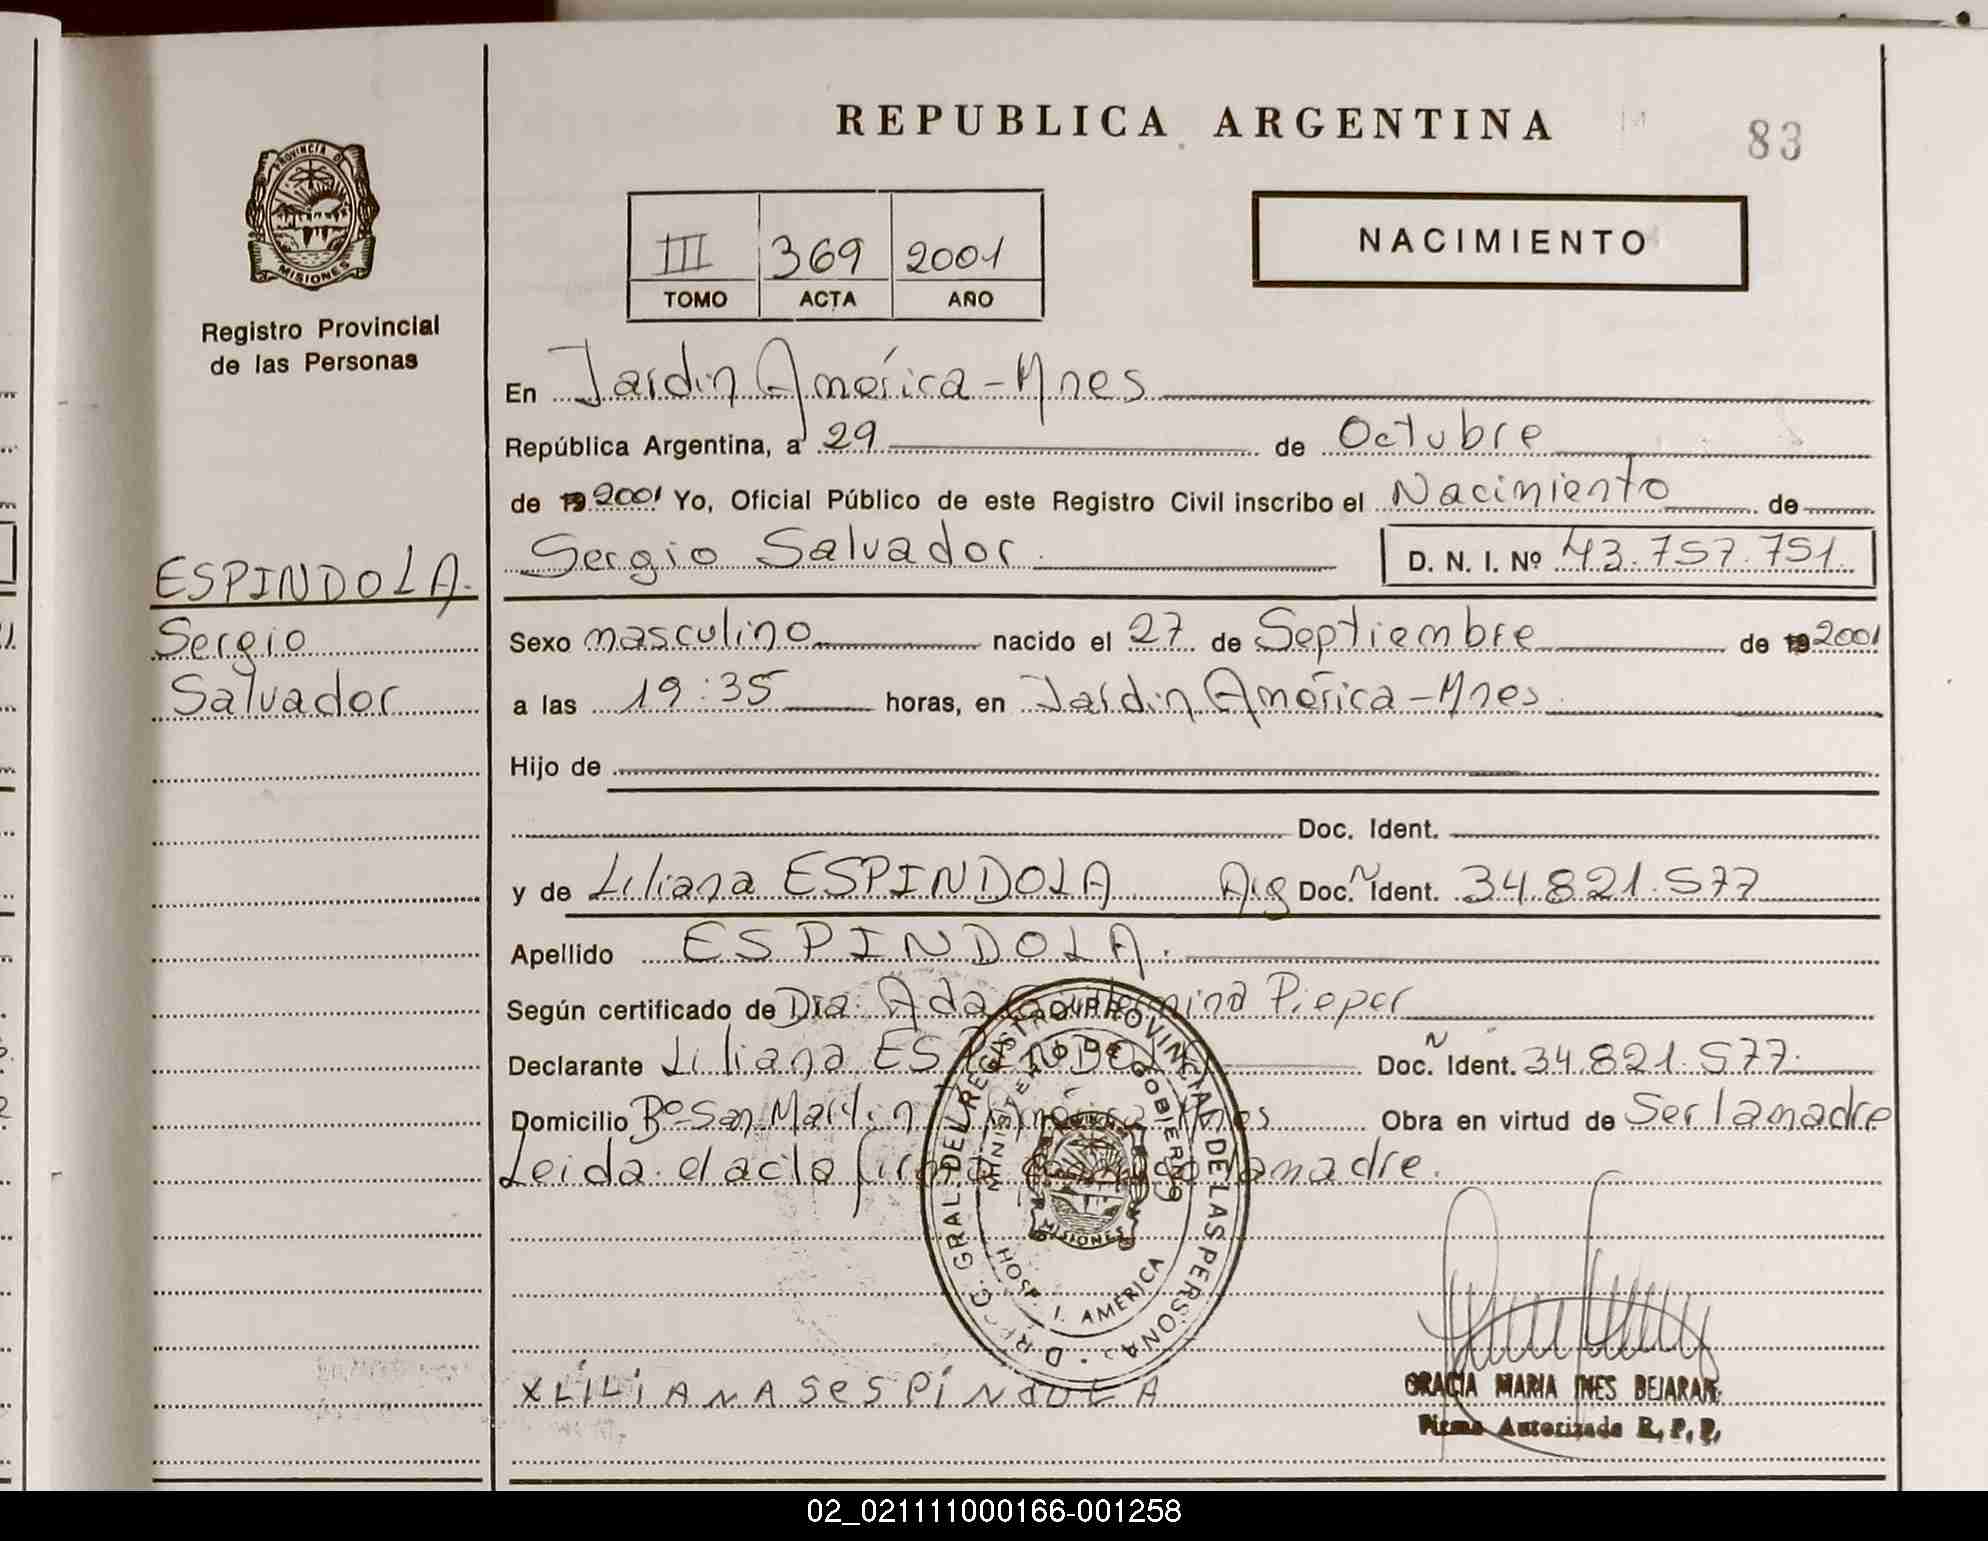 REPUBLICA ARGENTINA
83
PROVINCIA DE
MISIONES
Registro Provincial
de las Personas
III 369 2001
TOMO ACTA AÑO
NACIMIENTO
En Jardin América-Mnes
República Argentina, a 29 de Octubre
de 19 2001 Yo, Oficial Público de este Registro Civil inscribo el Nacimiento de
Sergio Salvador D. N. I. Nº 43.757.751.
ESPINDOLA.
Sergio
Salvador
Sexo masculino nacido el 27 de Septiembre de 19 2001
a las 19:35 horas, en Jardin América-Mnes
Hijo de
Doc. Ident.
y de Liliana ESPINDOLA Arg Doc. Ident. 34.821.577
Apellido ESPINDOLA.
Según certificado de Dra. Ada Guillermina Pieper
Declarante Liliana ESPINDOLA Doc. Ident. 34.821.577.
Domicilio Bº San Martin J. América Mnes Obra en virtud de Ser la madre
Leida el acta firma conmigo la madre.
D REG. GRAL. DEL REGISTRO PROVINCIAL DE LAS PERSONAS
MINISTERIO DE GOBIERNO
MISIONES
HOSP. J. AMERICA
XLILIANASESPINdOLA
GRACIA MARIA INES BEJARAN
Firma Autorizada R. P. P.
02_021111000166-001258